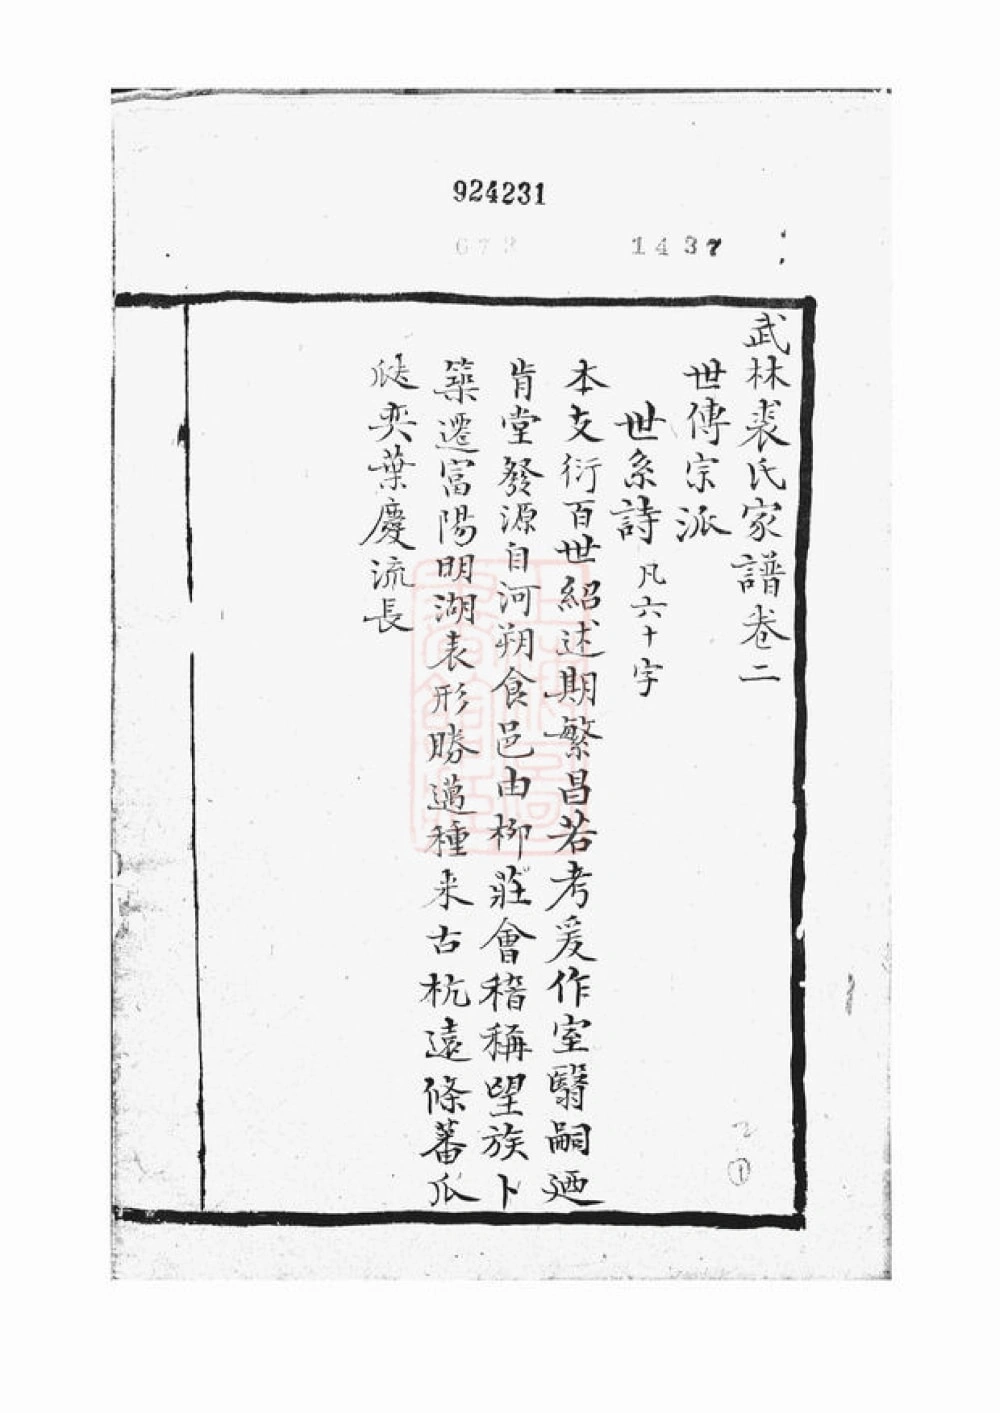 924231
1437
武林裘氏家譜卷二
世傳宗派
世系詩 凡六十字
本支衍百世紹述期繁昌若考爰作室翳嗣廼
肯堂發源自河朔食邑由柳莊會稽稱望族卜
築遷富陽明湖表形勝邁種来古杭遠條蕃瓜
瓞奕葉慶流長